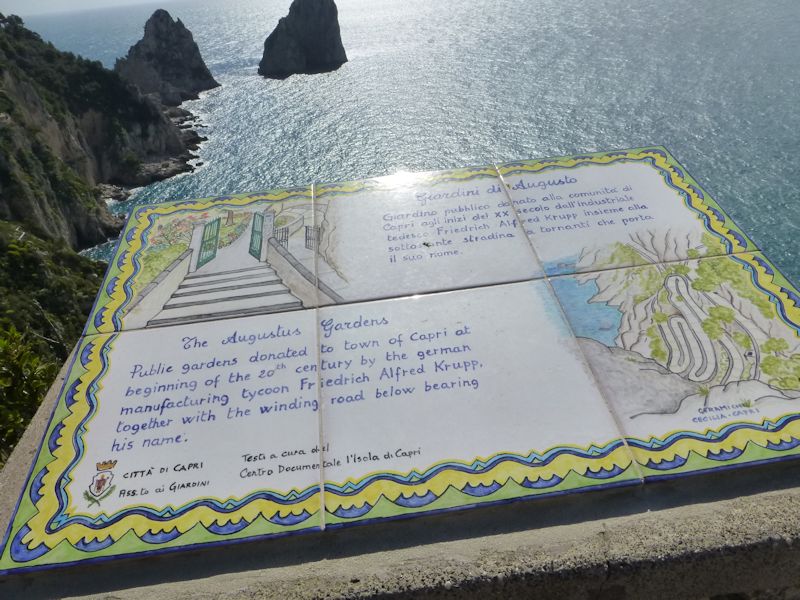 Giardini di Augusto
Giardino pubblico donato alla comunità di
Capri agli inizi del XX secolo dall'industriale
tedesco Friedrich Alfred Krupp insieme alla
sottostante stradina a tornanti che porta
il suo nome.
The Augustus Gardens
Public gardens donated to town of Capri at
beginning of the 20th century by the german
manufacturing tycoon Friedrich Alfred Krupp,
together with the winding road below bearing
his name.
CITTÀ DI CAPRI
Ass.to ai Giardini
Testi a cura del
Centro Documentale l'Isola di Capri
CERAMICHE
CECILIA - CAPRI